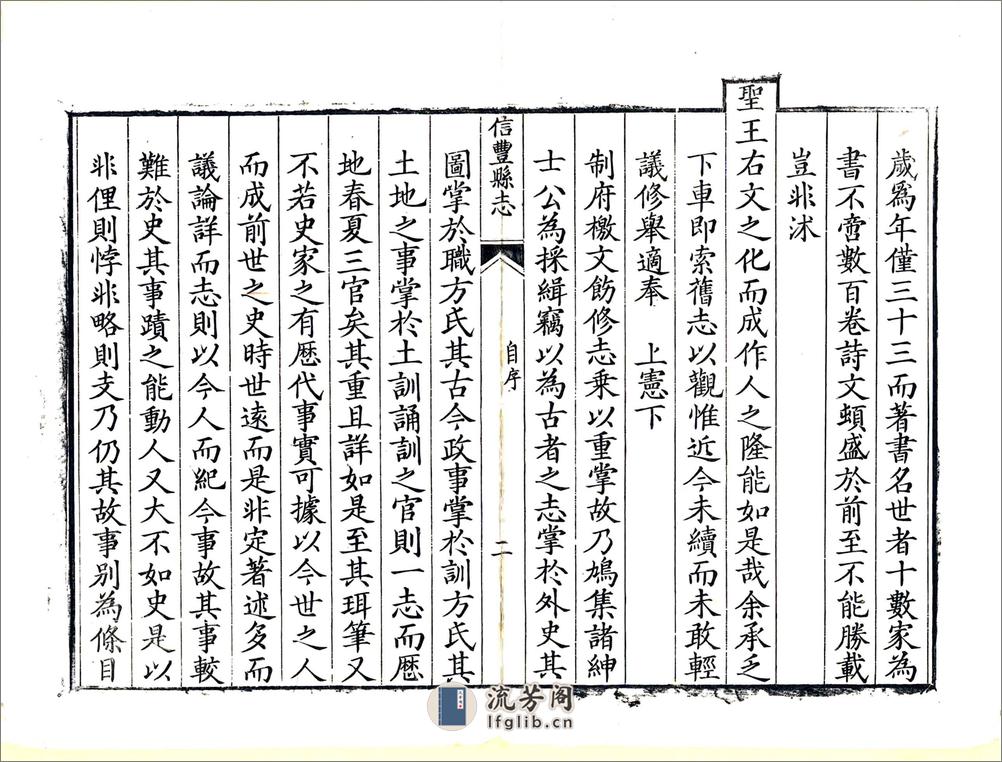 歲爲年僅三十三而著書名世者十數家為
書不啻數百卷詩文頓盛於前至不能勝載
豈非沭
聖王右文之化而成作人之隆能如是哉余承乏
下車即索舊志以觀惟近今未續而未敢輕
議修舉適奉　上憲下
制府檄文飭修志乘以重掌故乃鳩集諸紳
士公為採緝竊以為古者之志掌於外史其
信豐縣志
自序
二
圖掌於職方氏其古今政事掌於訓方氏其
土地之事掌於土訓誦訓之官則一志而歷
地春夏三官矣其重且詳如是至其珥筆又
不若史家之有歷代事實可據以今世之人
而成前世之史時世遠而是非定著述多而
議論詳而志則以今人而紀今事故其事較
難於史其事蹟之能動人又大不如史是以
非俚則悖非略則支乃仍其故事別為條目
流芳阁
lfglib.cn